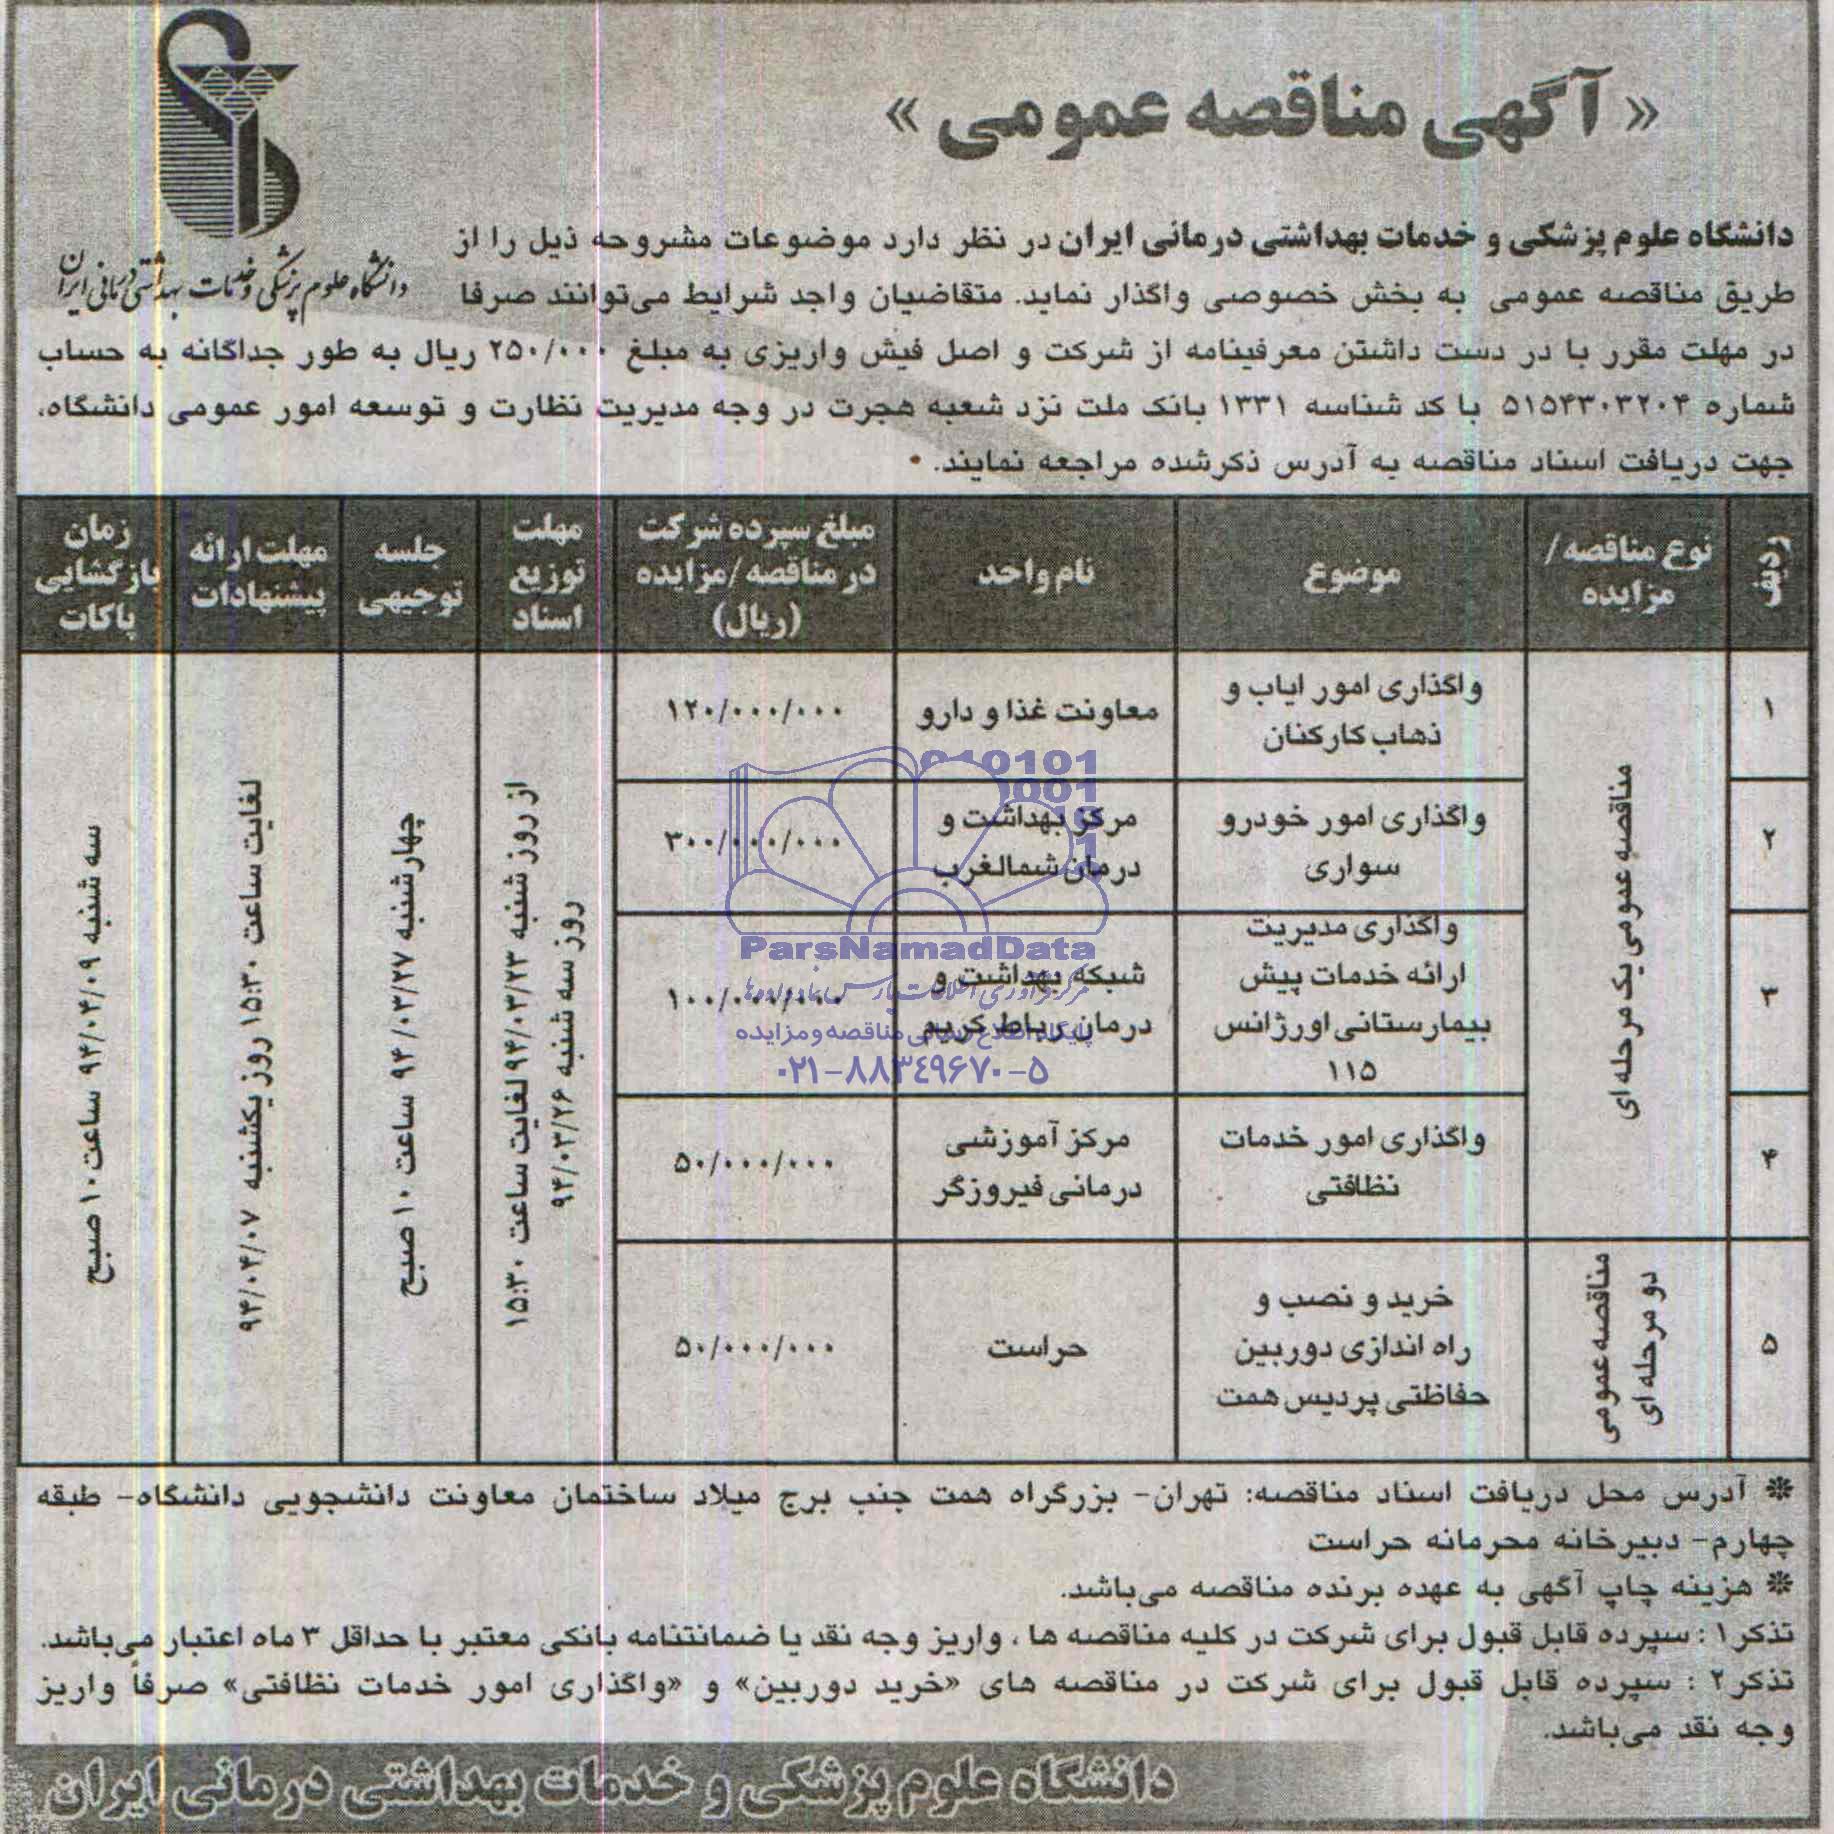 « آگهی مناقصه عمومی »
دانشگاه علوم پزشکی و خدمات بهداشتی درمانی ایران
دانشگاه علوم پزشکی و خدمات بهداشتی درمانی ایران در نظر دارد موضوعات مشروحه ذیل را از
طریق مناقصه عمومی به بخش خصوصی واگذار نماید. متقاضیان واجد شرایط می‌توانند صرفا
در مهلت مقرر با در دست داشتن معرفینامه از شرکت و اصل فیش واریزی به مبلغ ۲۵۰/۰۰۰ ریال به طور جداگانه به حساب
شماره ۵۱۵۴۳۰۳۲۰۴ با کد شناسه ۱۳۳۱ بانک ملت نزد شعبه هجرت در وجه مدیریت نظارت و توسعه امور عمومی دانشگاه،
جهت دریافت اسناد مناقصه به آدرس ذکرشده مراجعه نمایند.
ردیف
نوع مناقصه/
مزایده
موضوع
نام واحد
مبلغ سپرده شرکت
در مناقصه/مزایده
(ریال)
مهلت
توزیع
اسناد
جلسه
توجیهی
مهلت ارائه
پیشنهادات
زمان
بازگشایی
پاکات
۱
مناقصه عمومی یک مرحله ای
واگذاری امور ایاب و
ذهاب کارکنان
معاونت غذا و دارو
۱۲۰/۰۰۰/۰۰۰
از روز شنبه ۹۴/۰۳/۲۳ لغایت ساعت ۱۵:۳۰
روز سه شنبه ۹۴/۰۳/۲۶
چهارشنبه ۹۴/۰۳/۲۷ ساعت ۱۰ صبح
لغایت ساعت ۱۵:۳۰ روز یکشنبه ۹۴/۰۴/۰۷
سه شنبه ۹۴/۰۴/۰۹ ساعت ۱۰ صبح
۲
واگذاری امور خودرو
سواری
مرکز بهداشت و
درمان شمالغرب
۳۰۰/۰۰۰/۰۰۰
۳
واگذاری مدیریت
ارائه خدمات پیش
بیمارستانی اورژانس
۱۱۵
شبکه بهداشت و
درمان رباط کریم
۱۰۰/۰۰۰/۰۰۰
۴
واگذاری امور خدمات
نظافتی
مرکز آموزشی
درمانی فیروزگر
۵۰/۰۰۰/۰۰۰
۵
مناقصه عمومی
دو مرحله ای
خرید و نصب و
راه اندازی دوربین
حفاظتی پردیس همت
حراست
۵۰/۰۰۰/۰۰۰
ParsNamadData
پایگاه اطلاع رسانی مناقصه و مزایده
۰۲۱-۸۸۳۴۹۶۷۰-۵
❋ آدرس محل دریافت اسناد مناقصه: تهران- بزرگراه همت جنب برج میلاد ساختمان معاونت دانشجویی دانشگاه- طبقه
چهارم- دبیرخانه محرمانه حراست
❋ هزینه چاپ آگهی به عهده برنده مناقصه می‌باشد.
تذکر۱ : سپرده قابل قبول برای شرکت در کلیه مناقصه ها ، واریز وجه نقد یا ضمانتنامه بانکی معتبر با حداقل ۳ ماه اعتبار می‌باشد.
تذکر۲ : سپرده قابل قبول برای شرکت در مناقصه های «خرید دوربین» و «واگذاری امور خدمات نظافتی» صرفاً واریز
وجه نقد می‌باشد.
دانشگاه علوم پزشکی و خدمات بهداشتی درمانی ایران